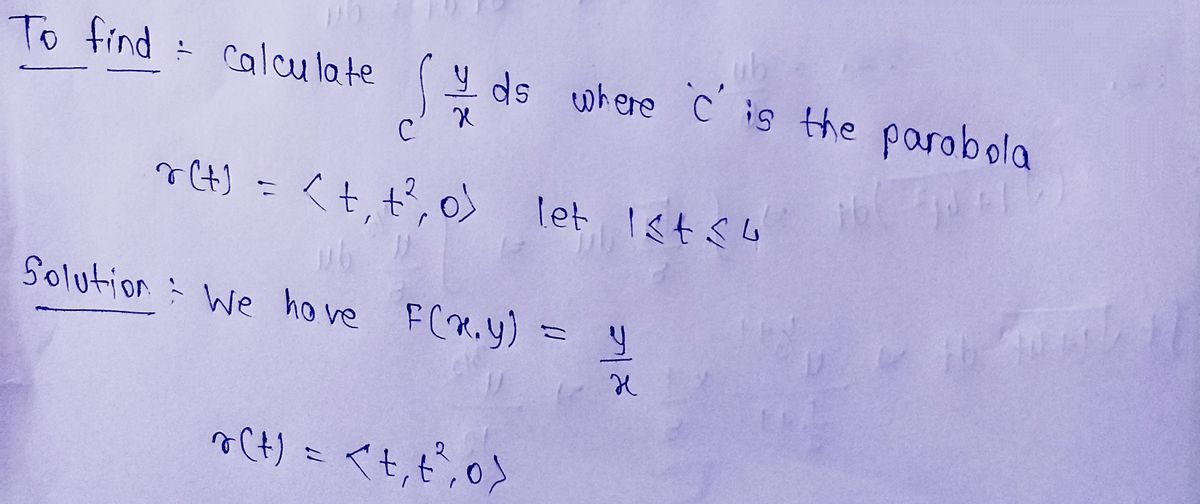 To find :- Calculate ∫_C y/x ds where 'C' is the parabola
r(t) = <t, t², 0> let 1 ≤ t ≤ 4
Solution :- We have F(x.y) = y/x
r(t) = <t, t², 0>